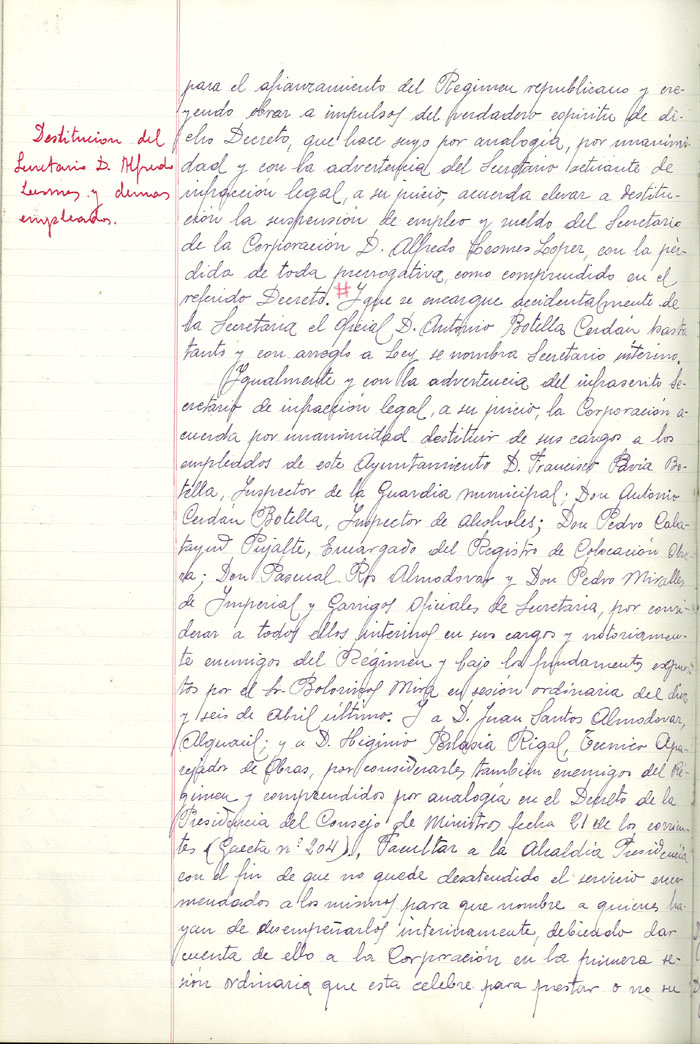 Destitucion del
Secretario D. Alfredo
Lesmes y demas
empleados.
para el afianzamiento del Régimen republicano y cre-
yendo obrar a impulsos del verdadero espiritu de di-
cho Decreto, que hace suyo por analogía, por unanimi-
dad y con la advertencia del Secretario actuante de
infracción legal, a su juicio, acuerda elevar a destitu-
ción la suspensión de empleo y sueldo del Secretario
de la Corporación D. Alfredo Lesmes Lopez, con la pér-
dida de toda prerrogativa, como comprendido en el
referido Decreto. # Y que se encargue accidentalmente de
la Secretaria el oficial D. Antonio Botella Cerdán hasta
tanto y con arreglo a Ley se nombra Secretario interino.
Igualmente y con la advertencia del infrascrito Se-
cretario de infracción legal, a su juicio, la Corporación a-
cuerda por unanimidad destituir de sus cargos a los
empleados de este Ayuntamiento D. Francisco Pavia Bo-
tella, Inspector de la Guardia municipal; Don Antonio
Cerdán Botella, Inspector de alcoholes; Don Pedro Cala-
tayud Pujalte, Encargado del Registro de Colocación Obre-
ra; Don Pascual Ros Almodovar y Don Pedro Miralles
de Imperial y Garrigos Oficiales de Secretaria, por consi-
derar a todos ellos interinos en sus cargos y notoriamen-
te enemigos del Régimen y bajo los fundamentos expues-
tos por el Sr. Bolorinos Mira en sesión ordinaria del diez
y seis de Abril último. Y a D. Juan Santos Almodovar,
Alguacil; y a D. Higinio Perlasia Rigal, Tecnico Apa-
rejador de Obras, por considerarles tambien enemigos del Ré-
gimen y comprendidos por analogía en el Decreto de la
Presidencia del Consejo de Ministros fecha 21 de los corrien-
tes (Gaceta nº 204). Facultar a la Alcaldía Presidencia
con el fin de que no quede desatendido el servicio enco-
mendados a los mismos para que nombre a quienes ha-
yan de desempeñarlos interinamente, debiendo dar
cuenta de ello a la Corporación en la primera se-
sión ordinaria que esta celebre para prestar o no su